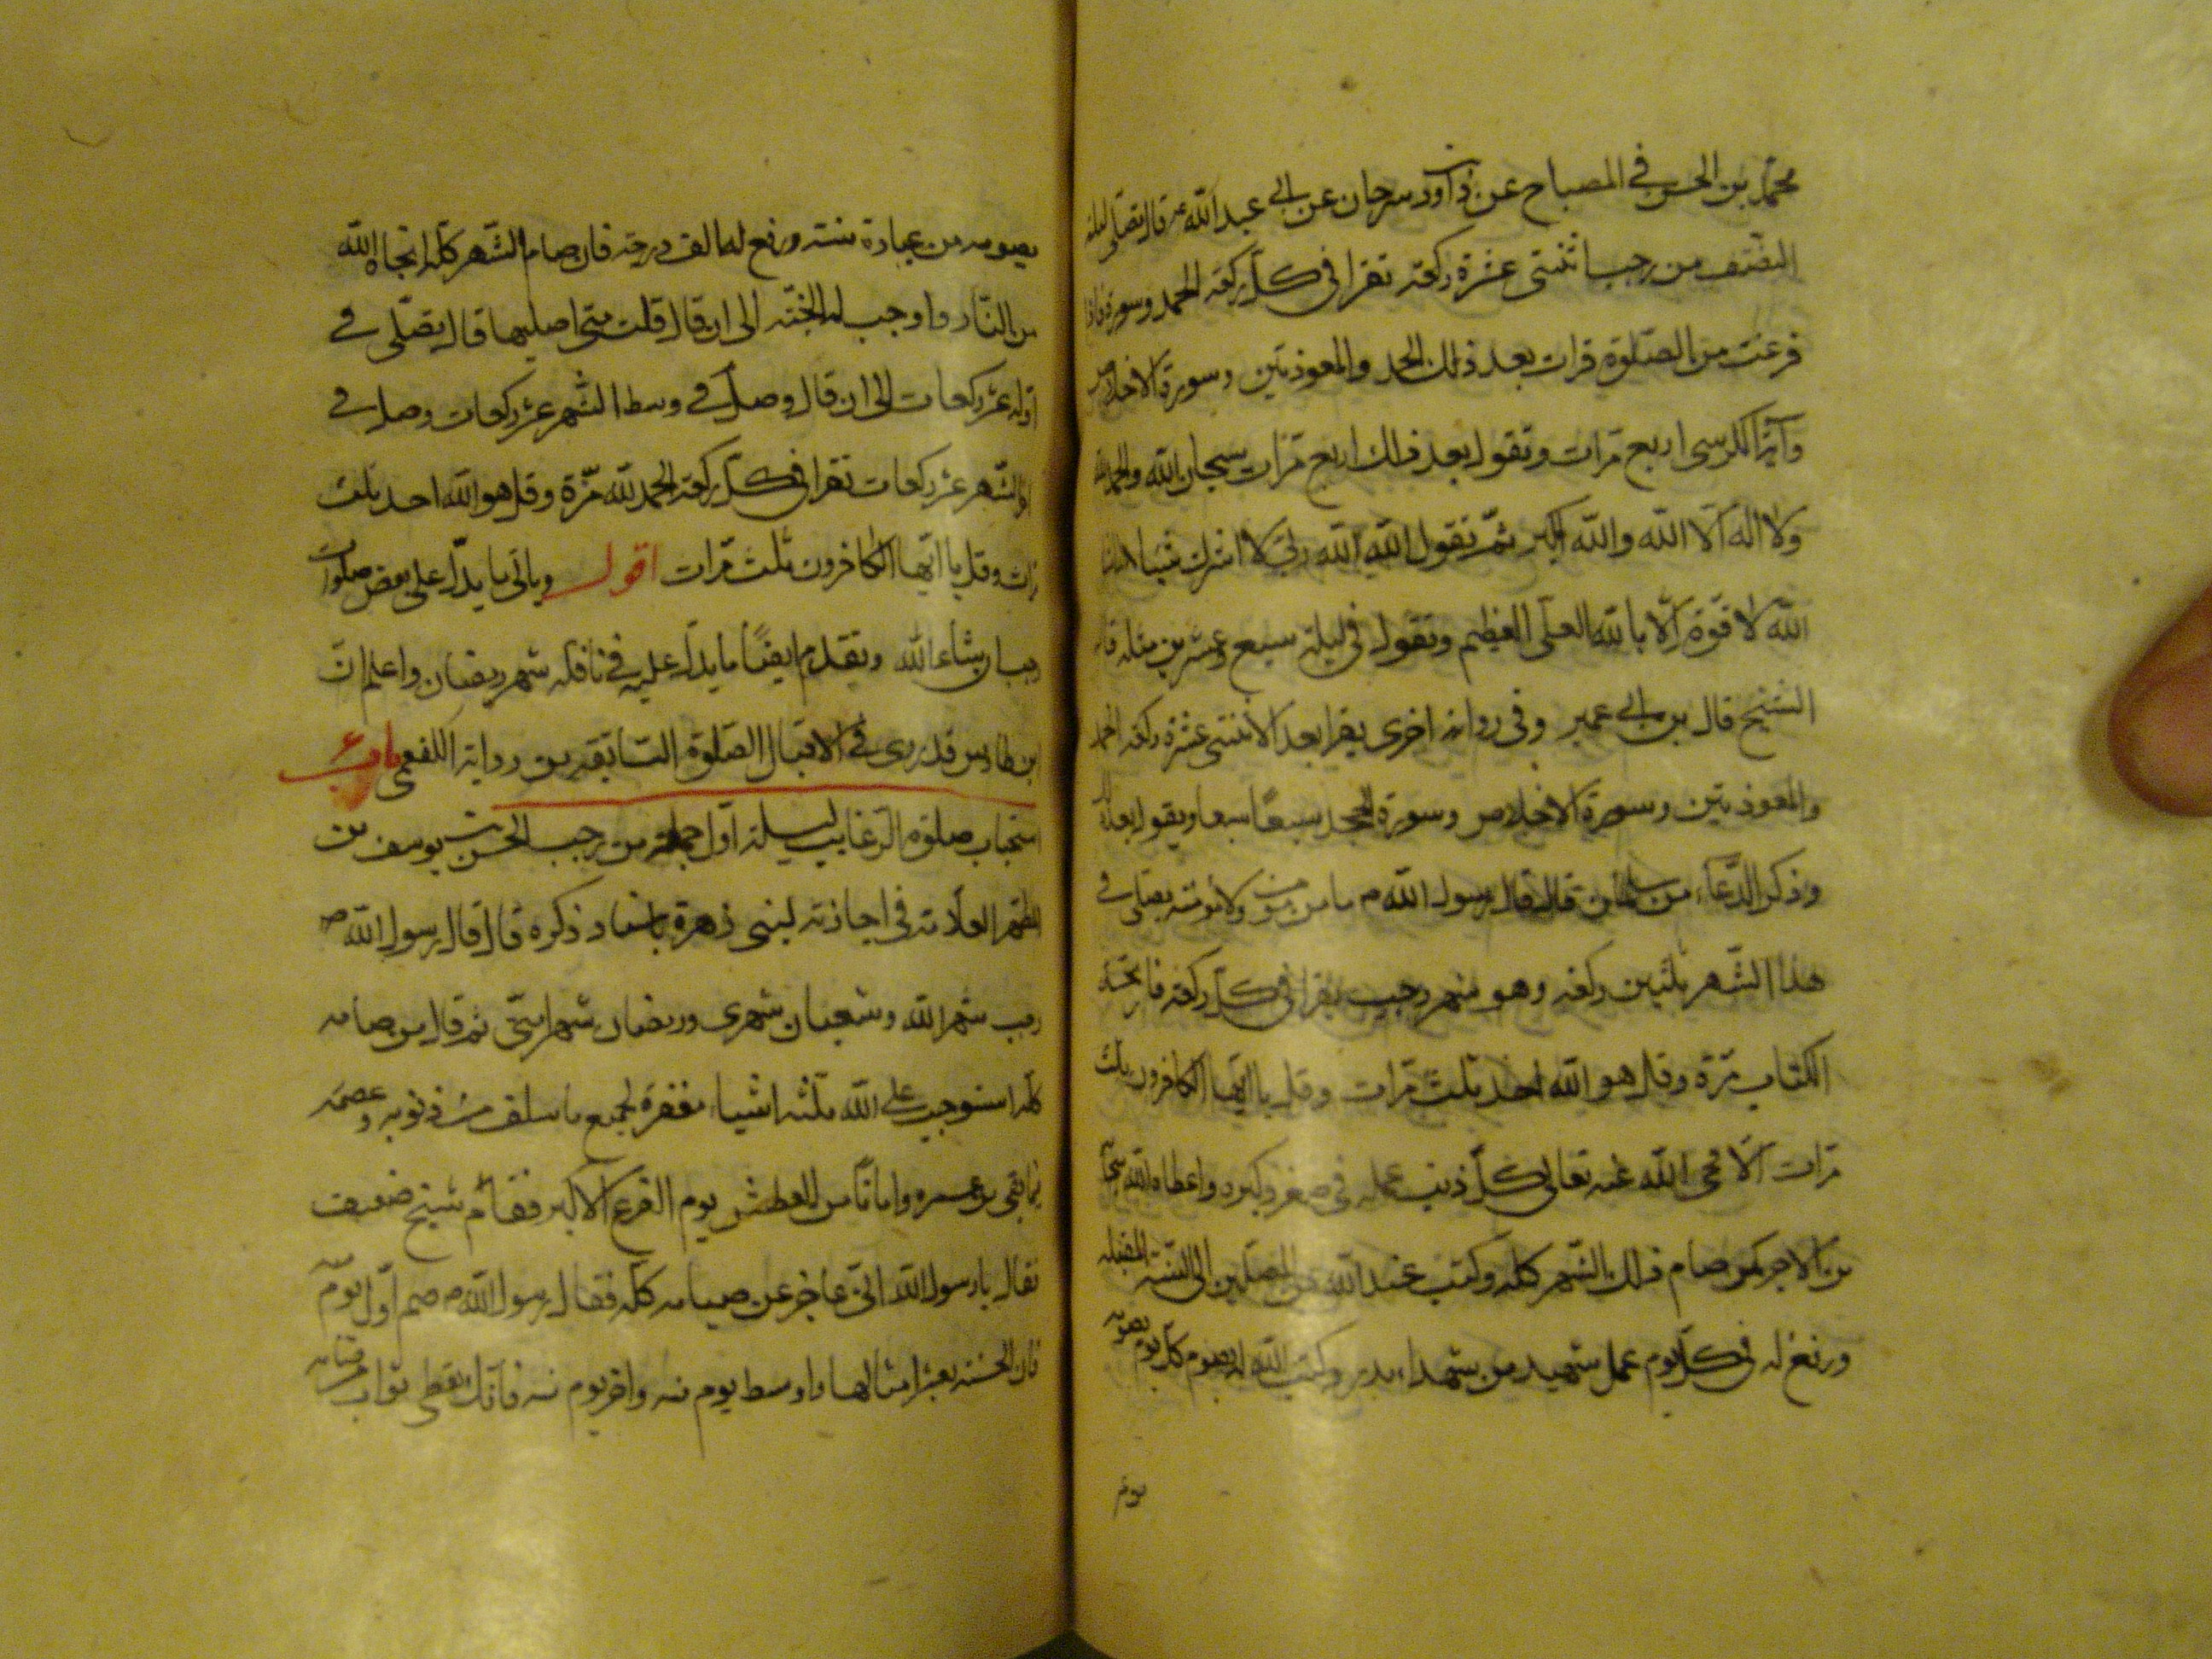 محمّد بن الحسن في المصباح عن داود بن سرحان عن ابي عبد الله ع قال تصلّى ليلة
النّصف من رجب اثنتى عشرة ركعة تقرا في كلّ ركعة الحمد وسورة فاذا
فرغت من الصّلوة قرات بعد ذلك الحمد والمعوذتين وسورة الاخلاص
وآية الكرسى اربع مرّات وتقول بعد ذلك اربع مرّات سبحان الله والحمد لله
ولا اله الّا الله والله اكبر ثمّ تقول الله الله ربّي لا اشرك به شيئا
الله لا قوّة الّا بالله العلى العظيم وتقول في ليلة سبع وعشرين مثله
الشيخ قال بن ابي عمير وفي رواية اخرى يقرا بعد الاثنتى عشرة ركعة الحمد
والمعوذتين وسورة الاخلاص وسورة الجحد سبعًا سبعا ويقول بعد
وذكر الدّعاء سلمان قال قال رسول الله ص ما من مؤمن ولا مؤمنة يصلى في
هذا الشّهر ثلثين ركعة وهو شهر رجب يقرا في كلّ ركعة فاتحة
الكتاب مرّة وقل هو الله احد ثلث مرّات وقل يا ايّها الكافرون ثلث
مرّات الّا محى الله عنه تعالى كلّ ذنب عمله في صغره وكبره واعطاه الله
من الاجر كمن صام ذلك الشّهر كلّه وكتب عند الله من المصلّين الى السّنة المقبلة
ورفع له في كلّ يوم عمل شهيد من شهداء بدر وكتب الله له بصوم كلّ يوم يصومه
يوم
يصومه من عبادة سنة ورفع له الف درجة فان صام الشّهر كلّه انجاه الله
من النّار واوجب له الجنّة الى ان قال قلت متى اصليها قال تصلّى في
اوله عشر ركعات الى ان قال وصلّ في وسط الشّهر عشر ركعات وصل في
الشّهر عشر ركعات تقرا في كلّ ركعة الحمد لله مرّة وقل هو الله احد ثلث
مرات وقل يا ايّها الكافرون ثلث مرّات اقول وياتى ما يدلّ على بعض صلوات
رجب ان شاء الله وتقدّم ايضًا ما يدلّ عليه في نافلة شهر رمضان واعلم انّ
بن طاوس قد روى في الاقبال الصّلوة السّابقة من رواية الكفعمى باب ٦
استحباب صلوة الرّغايب ليلة اوّل جمعة من رجب الحسن بن يوسف بن
المطهر العلّامة في اجازته لبنى زهرة باسناد ذكره قال قال رسول الله ص
رجب شهر الله وشعبان شهرى ورمضان شهر امتى ثم قال من صامه
كلّه استوجب على الله ثلثة اشياء مغفرة لجميع ما سلف من ذنوبه وعصمة
فيما بقى من عمره وامانًا من العطش يوم الفزع الاكبر فقام شيخ ضعيف
فقال يا رسول الله انّى عاجز عن صيامه كلّه فقال رسول الله ص صم اوّل يوم
فان الحسنة بعشر امثالها واوسط يوم منه واخر يوم منه فانّك تعطى ثواب من صامه